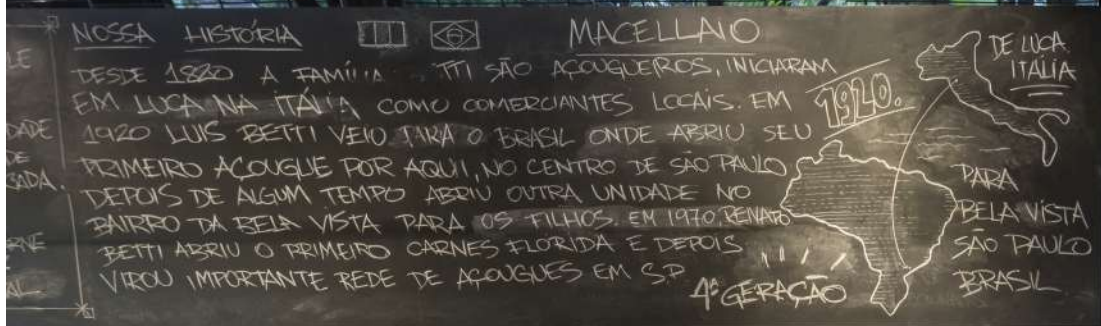 NOSSA HISTÓRIA
MACELLAIO
DESDE 1820 A FAMÍLIA TTI SÃO AÇOUGUEIROS, INICIARAM
EM LUCA NA ITÁLIA COMO COMERCIANTES LOCAIS. EM
1920 LUIS BETTI VEIO PARA O BRASIL ONDE ABRIU SEU
PRIMEIRO AÇOUGUE POR AQUI, NO CENTRO DE SÃO PAULO
DEPOIS DE ALGUM TEMPO ABRIU OUTRA UNIDADE NO
BAIRRO DA BELA VISTA PARA OS FILHOS. EM 1970, RENATO
BETTI ABRIU O PRIMEIRO CARNES FLORIDA E DEPOIS
VIROU IMPORTANTE REDE DE AÇOUGUES EM S.P
4ª GERAÇÃO
1920.
DE LUCA
ITÁLIA
PARA
BELA VISTA
SÃO PAULO
BRASIL